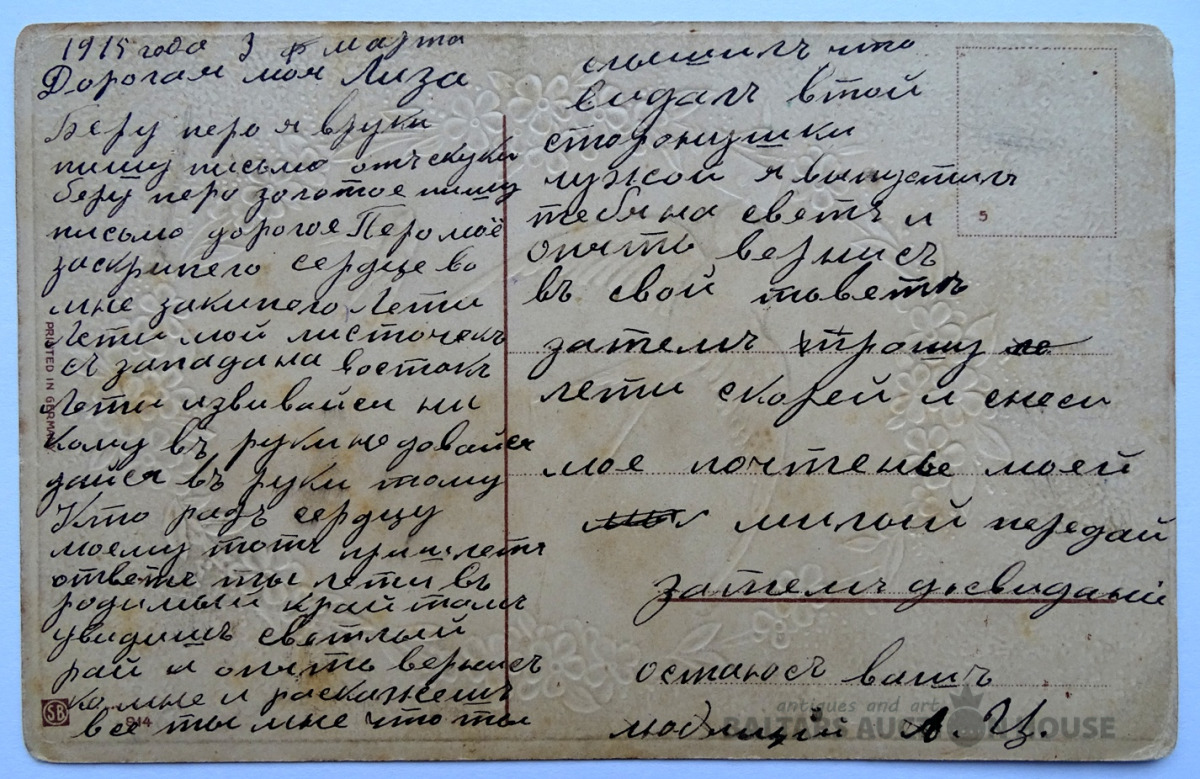 1915 года 3 марта
Дорогая моя Лиза
Беру перо я вруки
пишу письмо отъ скуки
беру перо золотое пишу
письмо дорогое Перо моё
заскрипело сердце во
мне закипело Лети
Лети мой листочекъ
съ запада на востокъ
Лети извивайся ни
кому въ руки не довайся
дайся въ руки тому
Кто радъ сердцу
моему тотъ пришлетъ
ответъ ты лети въ
родимый край тамъ
увидишъ светлый
рай и опять вернись
ко мне и раскажешъ
все ты мне что ты
слышилъ что
видалъ втой
сторонушки
чужой я выпустилъ
тебя на светъ и
опять вернисъ
въ свой товетъ
затемъ прошу
лети скорей и снеси
мое почтенье моей
милый передай
затемъ досвиданіи
остаюсъ вашъ
любящий А. Ц.
PRINTED IN GERMANY
SB
914
5
antiques and art
BALTARS AUCTION HOUSE